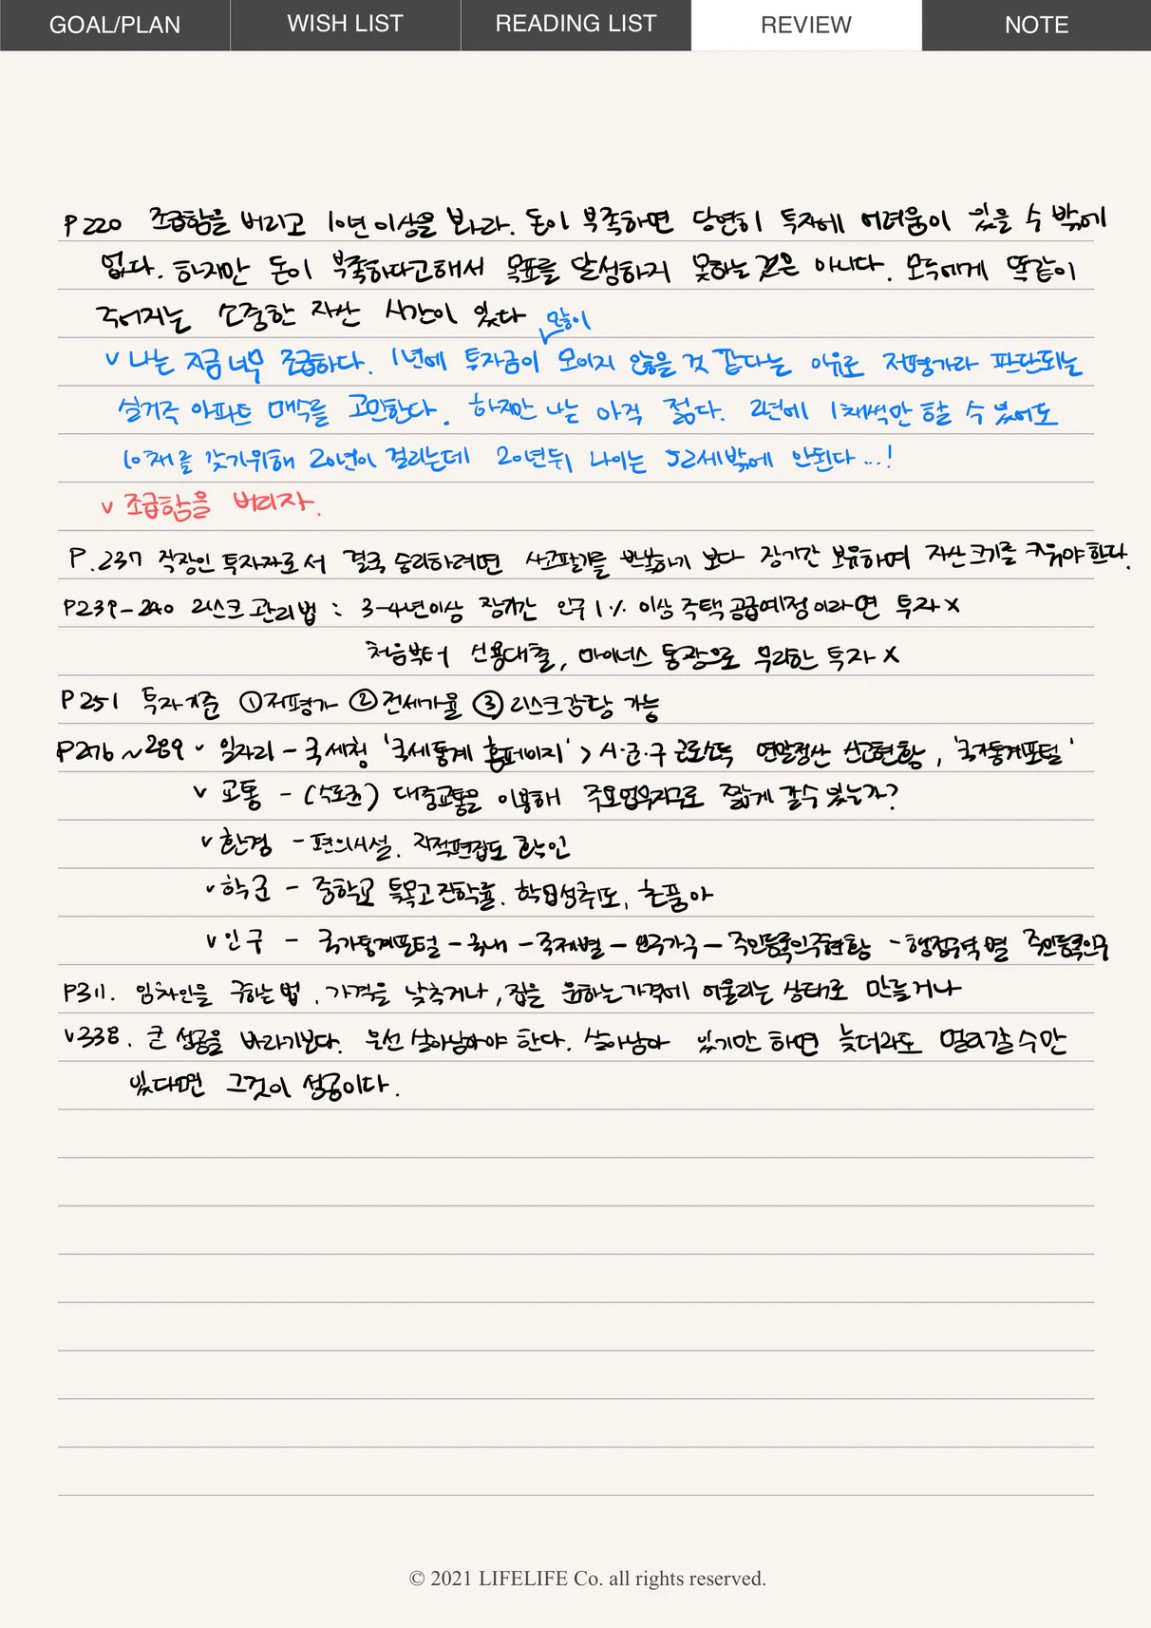 GOAL/PLAN WISH LIST READING LIST REVIEW NOTE
P220 조급함을 버리고 10년 이상을 봐라. 돈이 부족하면 당연히 투자에 어려움이 있을 수 밖에
없다. 하지만 돈이 부족하다고해서 목표를 달성하지 못하는 것은 아니다. 모두에게 똑같이
주어지는 소중한 자산 시간이 있다
많이
v 나는 지금 너무 조급하다. 1년에 투자금이 모이지 않을 것 같다는 이유로 저평가라 판단되는
실거주 아파트 매수를 고민한다. 하지만 나는 아직 젊다. 2년에 1채씩만 할 수 있어도
10채를 갖기위해 20년이 걸리는데 20년뒤 나이는 52세밖에 안된다...!
v 조급함을 버리자.
P.237 직장인 투자자로서 결국 승리하려면 사고팔기를 반복하기 보다 장기간 보유하며 자산 크기를 키워야 한다.
P239-240 리스크 관리법 : 3-4년이상 장기간 인구 1% 이상 주택 공급예정이라면 투자 X
처음부터 신용대출, 마이너스 통장으로 무리한 투자 X
P251 투자기준 ①저평가 ②전세가율 ③리스크감당 가능
P276~289 v 일자리 - 국세청 '국세통계 홈페이지' > 시·군·구 근로소득 연말정산 신고현황, '국가통계포털'
v 교통 - (수도권) 대중교통을 이용해 주요업무지구로 짧게 갈수 있는가?
v 환경 - 편의시설. 지적편집도 확인
v 학군 - 중학교 특목고 진학률. 학업성취도,
v 인구 - 국가통계포털 - 국내 - 주제별 - 인구가구 - 주민등록인구현황 - 행정구역별 주민등록인구
P311. 임차인을 구하는 법. 가격을 낮추거나, 집을 원하는 가격에 어울리는 상태로 만들거나
v338. 큰 성공을 바라기보다. 우선 살아남아야 한다. 살아남아 있기만 하면 늦더라도 멀리갈 수만
있다면 그것이 성공이다.
© 2021 LIFELIFE Co. all rights reserved.